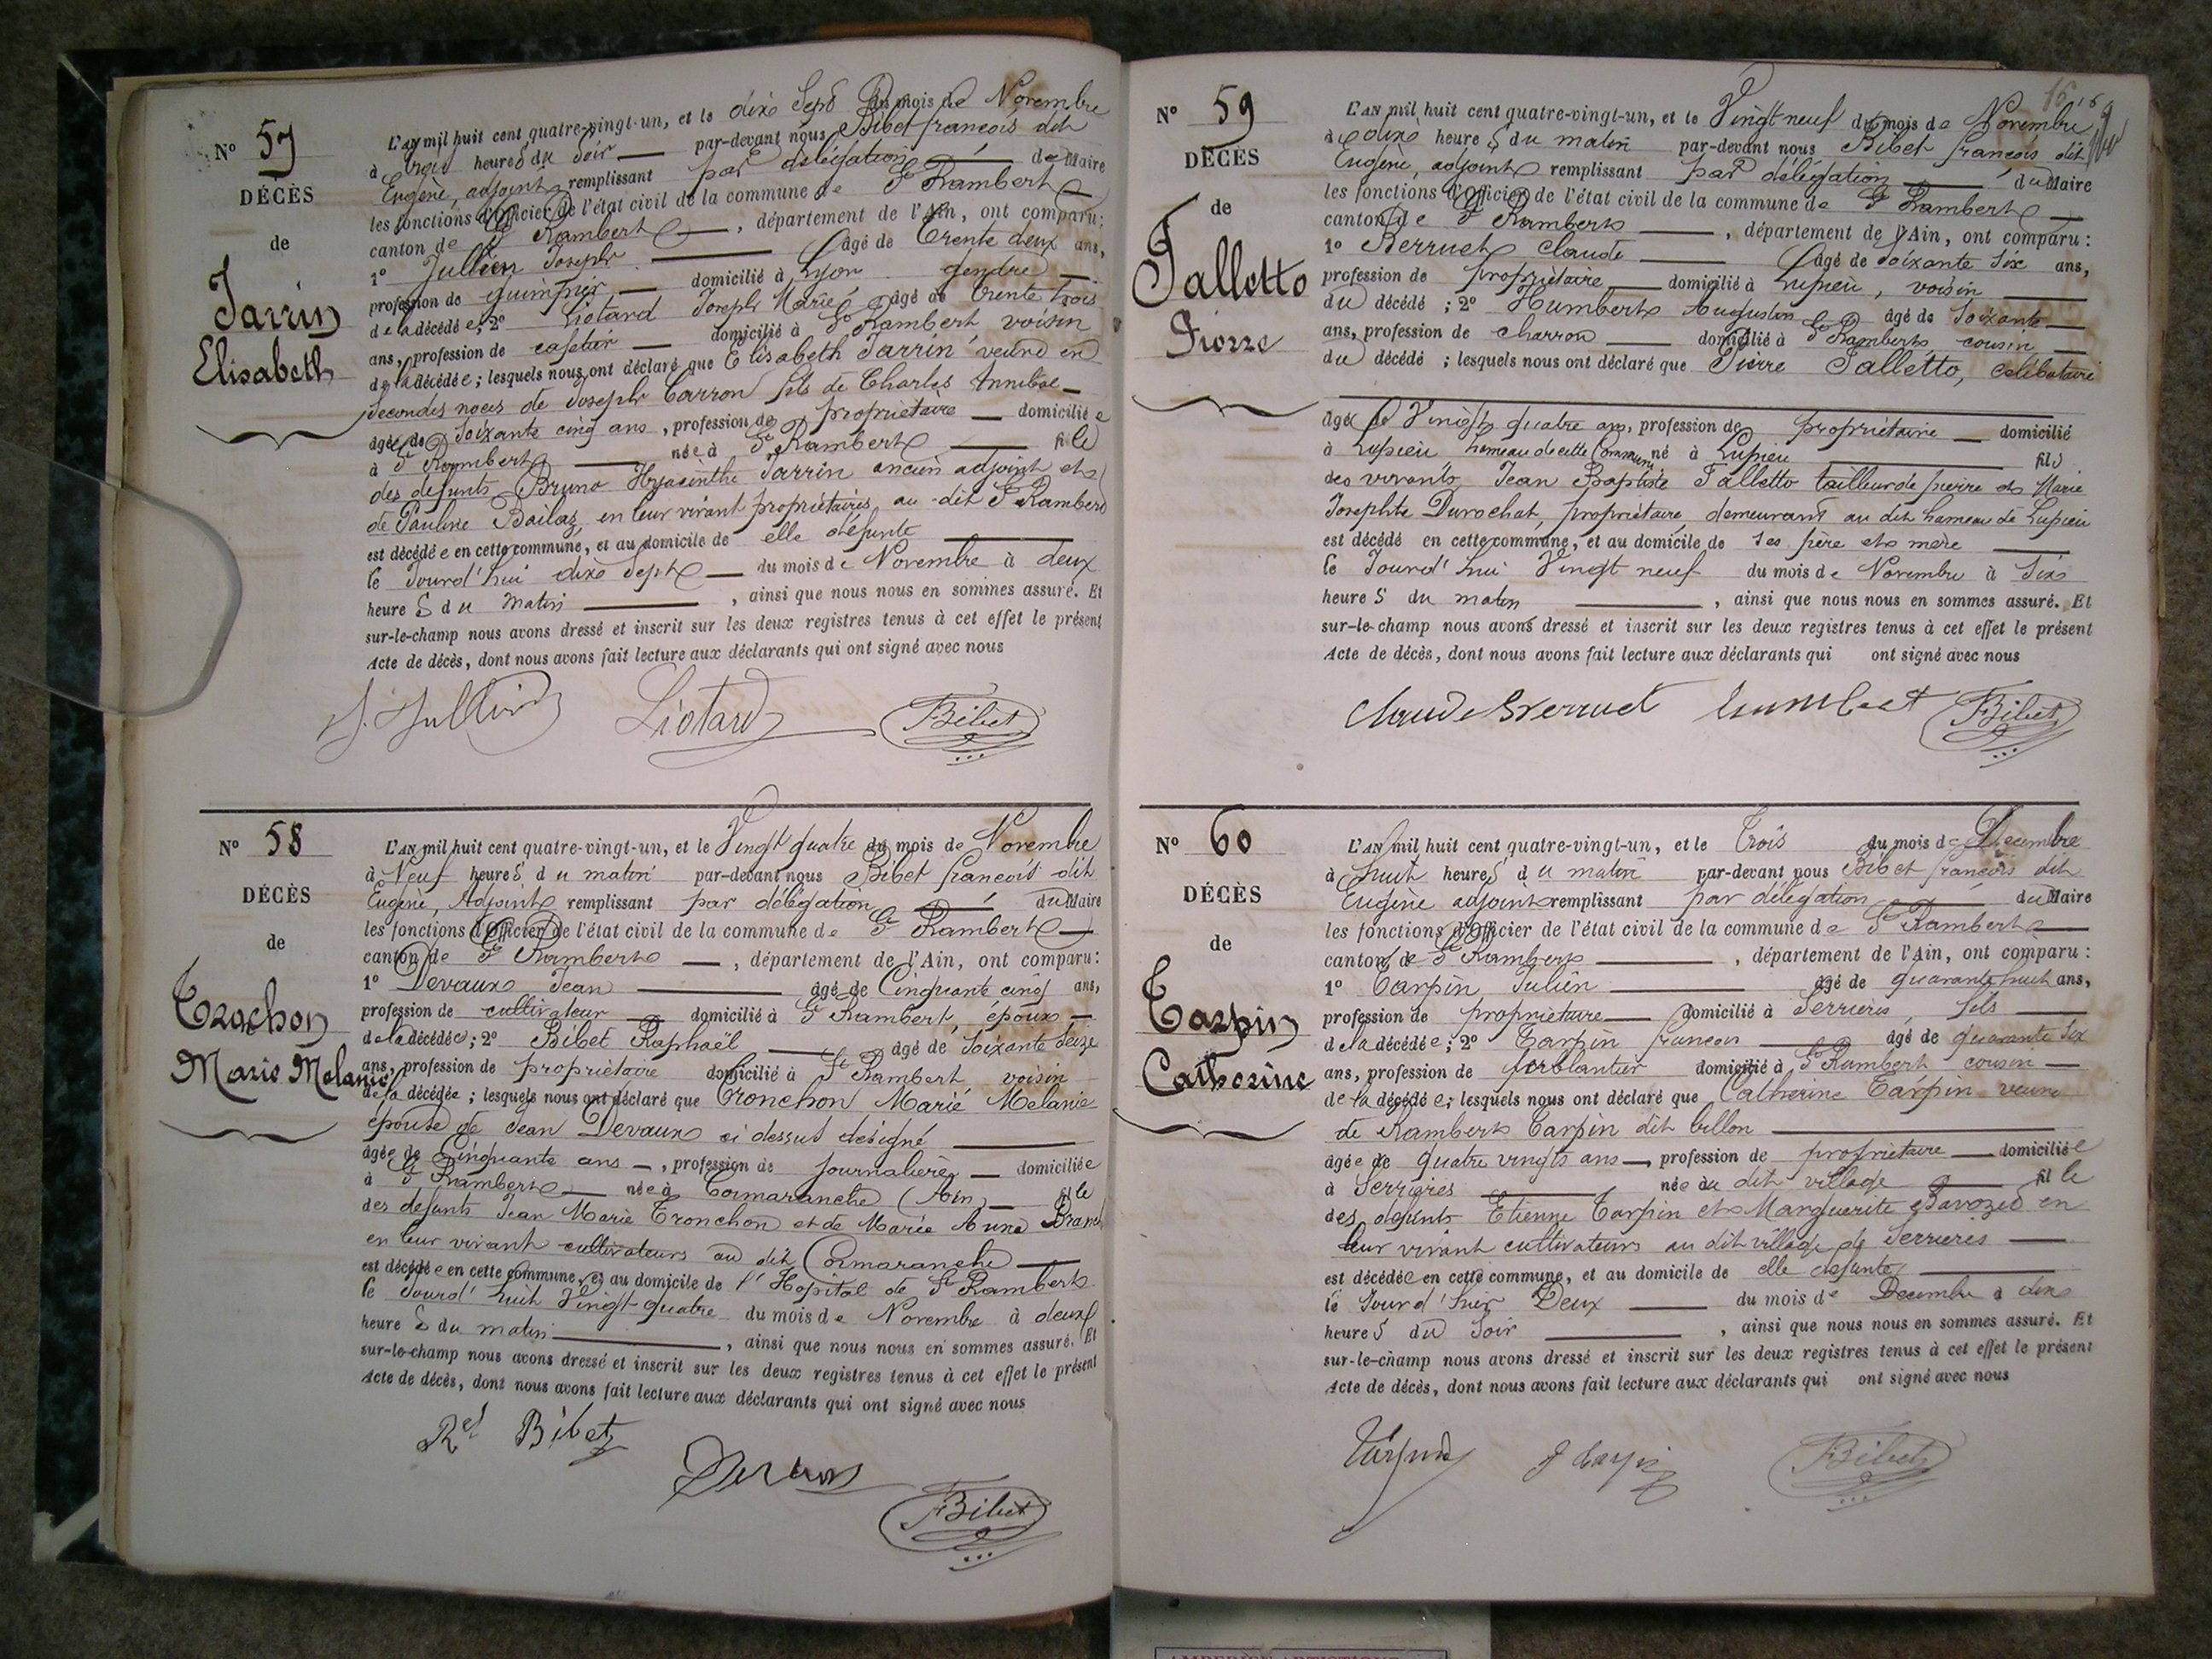 Nº 57
DÉCÈS
de
Jarrin
Elisabeth
L'AN mil huit cent quatre-vingt-un, et le dix Sept du mois de Novembre
à trois heures du Soir par-devant nous Bibet françois dit
Eugène, adjoint remplissant par délégation de Maire
les fonctions d'officier de l'état civil de la commune de St Rambert
canton de St Rambert, département de l'Ain, ont comparu:
1º Jullien Joseph âgé de trente deux ans,
profession de guimpier domicilié à Lyon gendre
de la décédée; 2º Liotard Joseph Marie âgé de trente trois
ans, profession de cafetier domicilié à St Rambert voisin
de la décédée; lesquels nous ont déclaré que Elisabeth Jarrin veuve en
Secondes noces de Joseph Carron fils de Charles Annibal
âgée de Soixante cinq ans, profession de propriétaire domiciliée
à St Rambert née à St Rambert fille
des defunts Bruno Hyacinthe Jarrin ancien adjoint et
de Pauline Bailaz, en leur vivant propriétaires au dit St Rambert
est décédée en cette commune, et au domicile de elle défunte
le Jourd'hui dix Sept du mois de Novembre à deux
heures du matin, ainsi que nous nous en sommes assuré. Et
sur-le-champ nous avons dressé et inscrit sur les deux registres tenus à cet effet le présent
Acte de décès, dont nous avons fait lecture aux déclarants qui ont signé avec nous
J. Jullien Liotard Bibet
Nº 58
DÉCÈS
de
Trochon
Marie Melanie
L'AN mil huit cent quatre-vingt-un, et le Vingt quatre du mois de Novembre
à Neuf heures du matin par-devant nous Bibet françois dit
Eugène, Adjoint remplissant par délégation du Maire
les fonctions d'officier de l'état civil de la commune de St Rambert
canton de St Rambert, département de l'Ain, ont comparu:
1º Devaux Jean âgé de Cinquante cinq ans,
profession de cultivateur domicilié à St Rambert, époux
de la décédée; 2º Bibet Raphaël âgé de Soixante Seize
ans, profession de propriétaire domicilié à St Rambert, voisin
de la décédée; lesquels nous ont déclaré que Tronchon Marie Melanie
épouse de Jean Devaux ci dessus designé
âgée de Cinquante ans, profession de journalière domiciliée
à St Rambert née à Cormaranche (Ain) fille
des defunts Jean Marie Tronchon et de Marie Anne
en leur vivant cultivateurs au dit Cormaranche
est décédée en cette commune, et au domicile de l'Hopital de St Rambert
le Jourd'huit Vingt-quatre du mois de Novembre à deux
heures du matin, ainsi que nous nous en sommes assuré. Et
sur-le-champ nous avons dressé et inscrit sur les deux registres tenus à cet effet le présent
Acte de décès, dont nous avons fait lecture aux déclarants qui ont signé avec nous
Rel Bibet
Devaux
Bibet
16
Nº 59
DÉCÈS
de
Falletto
Pierre
L'AN mil huit cent quatre-vingt-un, et le Vingt neuf du mois de Novembre
à dix heures du matin par-devant nous Bibet françois dit
Eugène, adjoint remplissant par délégation du Maire
les fonctions d'officier de l'état civil de la commune de St Rambert
canton de St Rambert, département de l'Ain, ont comparu:
1º Berruet Claude âgé de Soixante Six ans,
profession de propriétaire domicilié à Lupieu, voisin
du décédé; 2º Humbert Augustin âgé de Soixante
ans, profession de charron domicilié à St Rambert, cousin
du décédé; lesquels nous ont déclaré que Pierre Falletto, celibataire
âgé de Vingt quatre ans, profession de propriétaire domicilié
à Lupieu hameau de cette Commune né à Lupieu fils
des vivants Jean Baptiste Falletto tailleur de pierre et Marie
Josephte Durochat, propriétaire, demeurant au dit hameau de Lupieu
est décédé en cette commune, et au domicile de ses père et mère
le Jourd'hui Vingt neuf du mois de Novembre à Six
heures du matin, ainsi que nous nous en sommes assuré. Et
sur-le-champ nous avons dressé et inscrit sur les deux registres tenus à cet effet le présent
Acte de décès, dont nous avons fait lecture aux déclarants qui ont signé avec nous
Claude Berruet humbert Bibet
Nº 60
DÉCÈS
de
Tarpin
Catherine
L'AN mil huit cent quatre-vingt-un, et le Trois du mois de Decembre
à huit heures du matin par-devant nous Bibet françois dit
Eugène adjoint remplissant par délégation du Maire
les fonctions d'officier de l'état civil de la commune de St Rambert
canton de St Rambert, département de l'Ain, ont comparu:
1º Tarpin Julien âgé de quarante huit ans,
profession de propriétaire domicilié à Serrières, fils
de la décédée; 2º Tarpin françois âgé de quarante Six
ans, profession de ferblantier domicilié à St Rambert cousin
de la décédée; lesquels nous ont déclaré que Catherine Tarpin veuve
de Rambert Tarpin dit billon
âgée de quatre vingts ans, profession de propriétaire domiciliée
à Serrières née au dit village fille
des defunts Etienne Tarpin et Marguerite Savozed en
leur vivant cultivateurs au dit village de Serrières
est décédée en cette commune, et au domicile de elle defunte
le Jour d'hier Deux du mois de Decembre à dix
heures du Soir, ainsi que nous nous en sommes assuré. Et
sur-le-champ nous avons dressé et inscrit sur les deux registres tenus à cet effet le présent
Acte de décès, dont nous avons fait lecture aux déclarants qui ont signé avec nous
Tarpin f tarpin Bibet